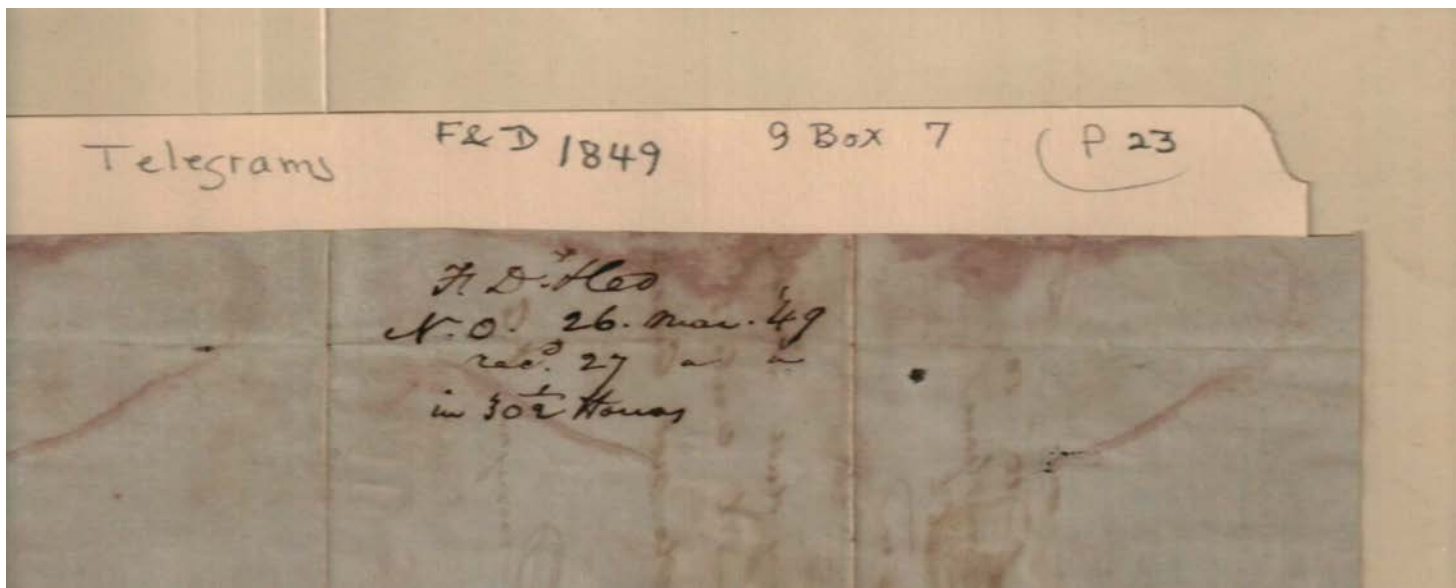 Telegrams F&D 1849 9 Box 7 P 23
N.O. 26. Mar. '49
recd. 27 " "
in 30½ Hours